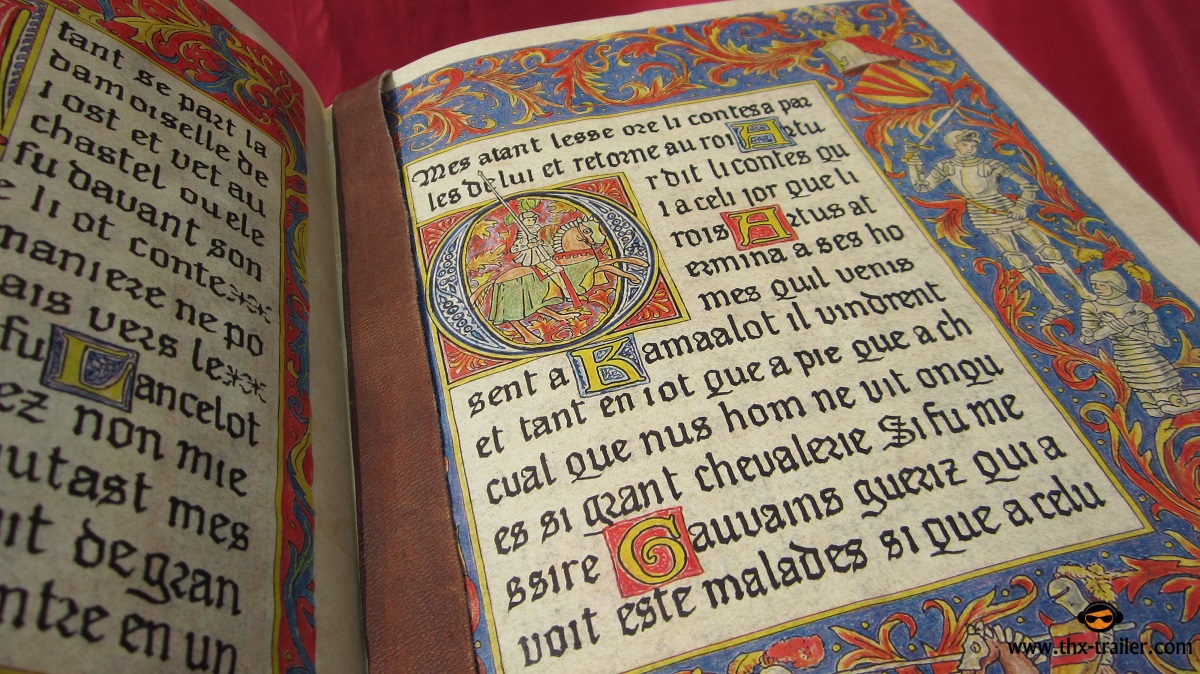 tant se part la
damoiselle de
l ost et vet au
chastel ou ele
fu davant son
e li ot conte
maniere ne po
ais vers le
fu Lancelot
ez non mie
utast mes
it de gran
ntre en un
mes atant lesse ore li contes a par
les de lui et retorne au roi Artu
O r dit li contes qu
i a celi jor que li
rois Artus at
ermina a ses ho
mes quil venis
sent a Kamaalot il vindrent
et tant en i ot que a pie que a ch
cual que nus hom ne vit onqu
es si grant chevalerie Si fu me
ssire Gauvains gueriz qui a
voit este malades si que a celu
www.thx-trailer.com